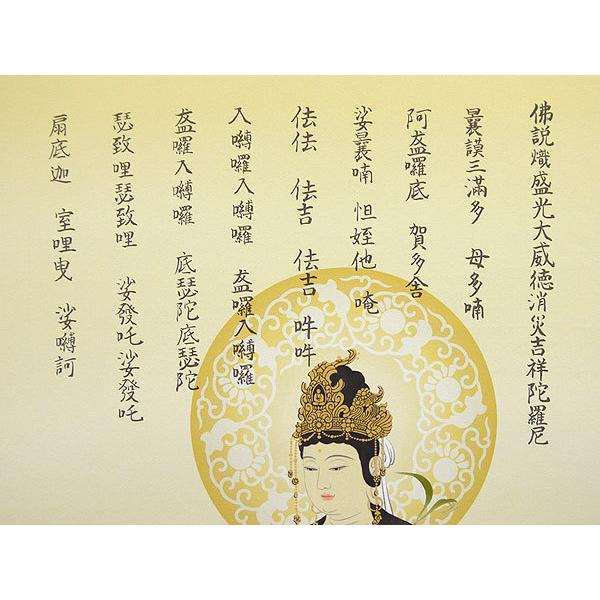 佛説熾盛光大威徳消災吉祥陀羅尼
曩謨三滿多　母多喃
阿盋囉底　賀多舍
娑曩喃　怛姪他　唵
佉佉　佉吉　佉吉　吽吽
入嚩囉入嚩囉　盋囉入嚩囉
盋囉入嚩囉　底瑟陀底瑟陀
瑟致哩瑟致哩　娑發吒娑發吒
扇底迦　室哩曳　娑嚩訶